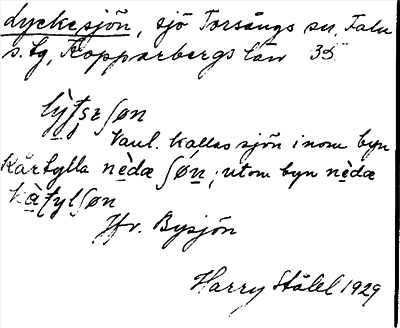 Lyckesjön, sjö Torsångs sn, Falu
s. lg, Kopparbergs län 35
lỳtʂɛ ʃøn
Vanl. kallas sjön inom byn
Kårtylla nèdæ ʃøn; utom byn nèdæ
kàtylʃøn
Jfr. Bysjön
Harry Ståhl 1929